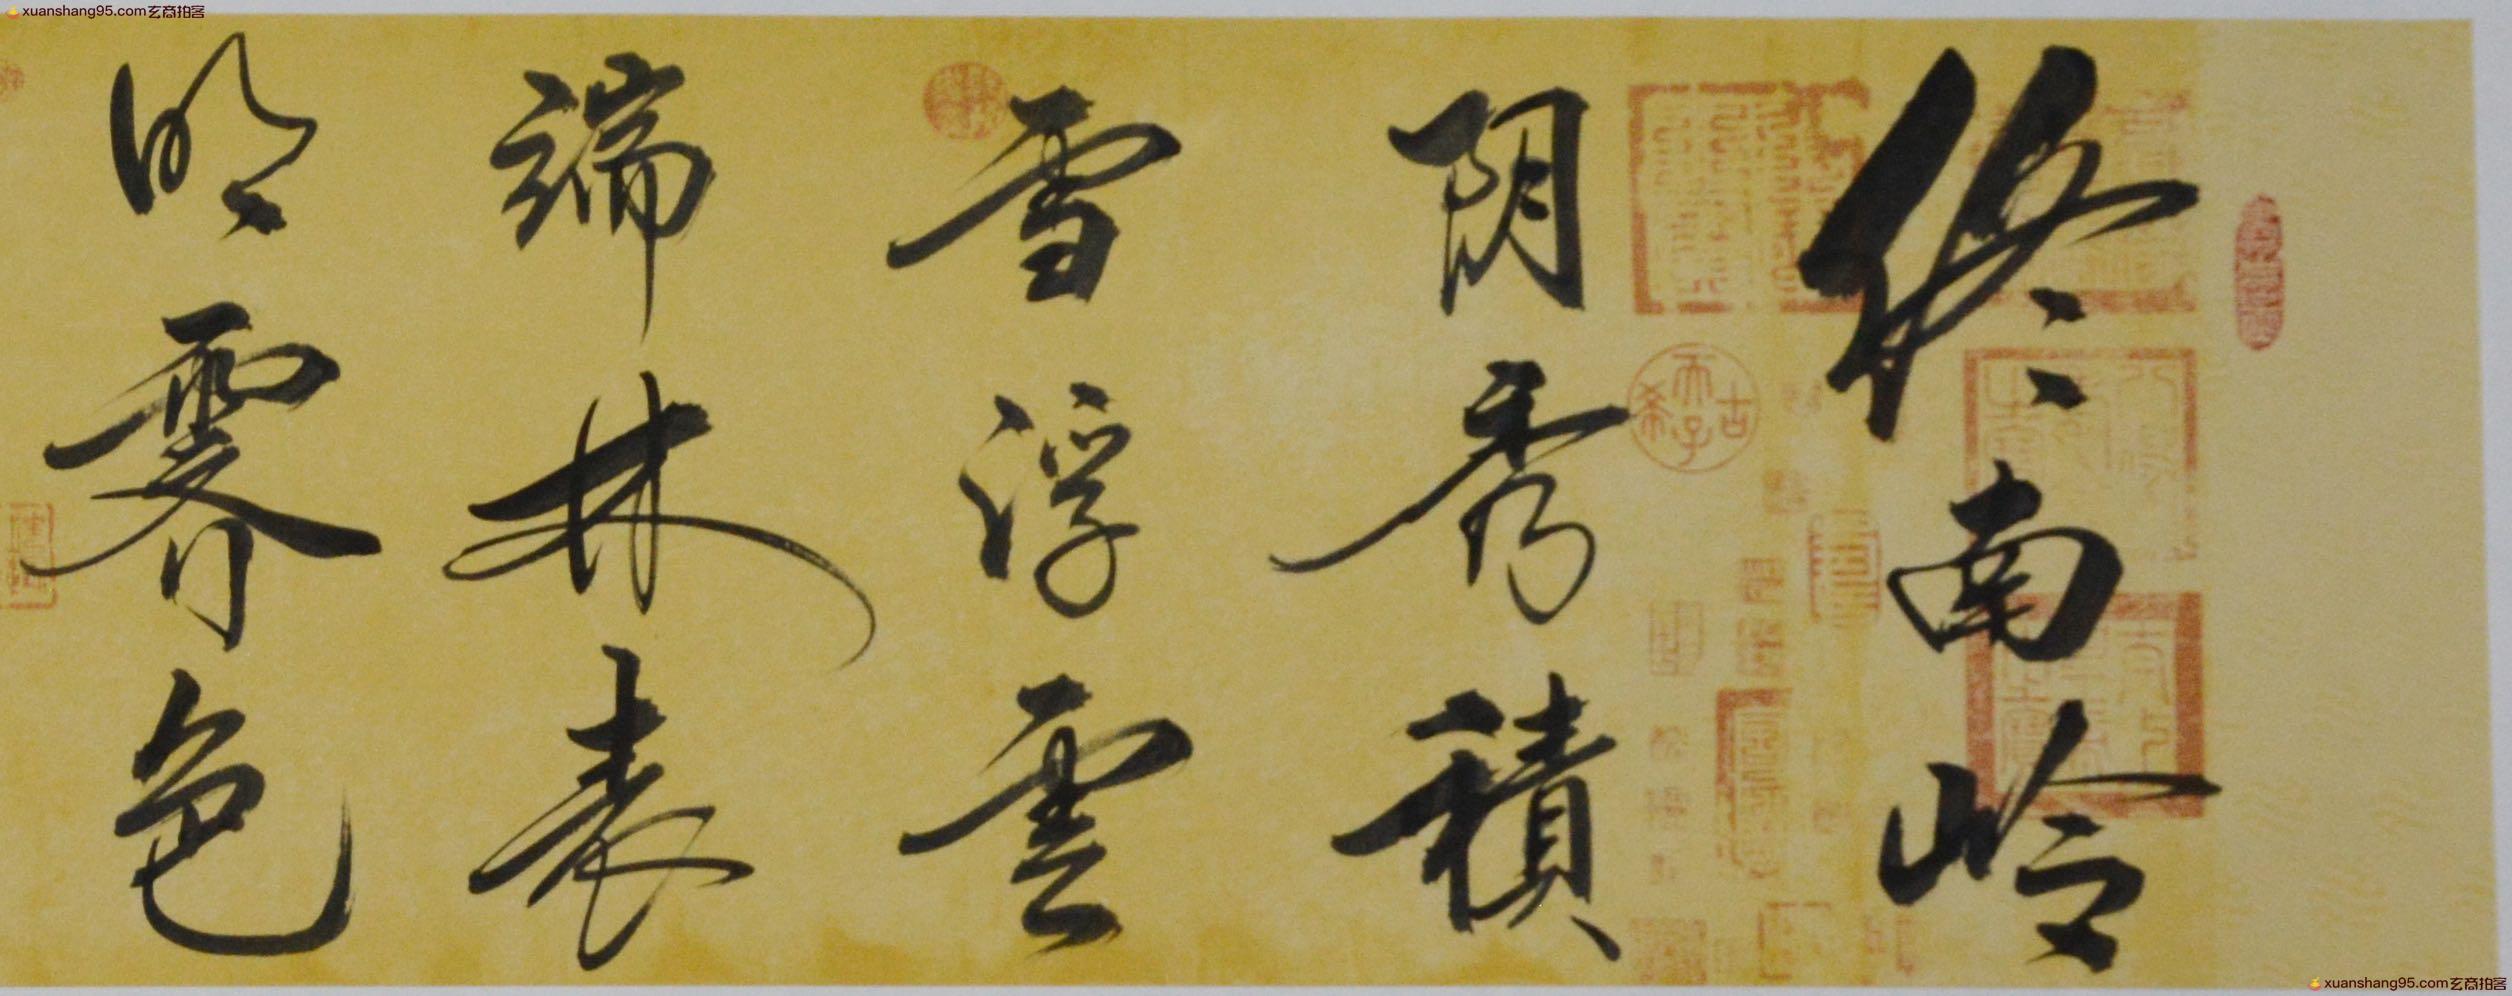 xuanshang95.com玄商拍客
终南岭
阴秀積
雪浮雲
端林表
明霽色
古希天子
xuanshang95.com玄商拍客